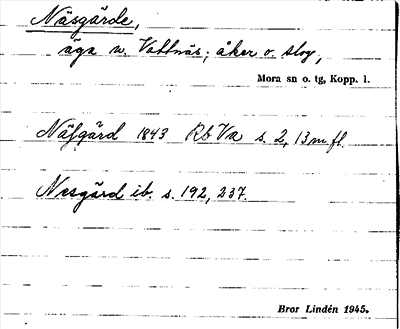 Näsgärde,
äga n. Vattnäs; åker o. slog,
Mora sn o. tg, Kopp. l.
Näsgärd 1843 Rb Va s. 2, 13 m fl.
Nesgärd ib. s. 192, 237.
Bror Lindén 1945.